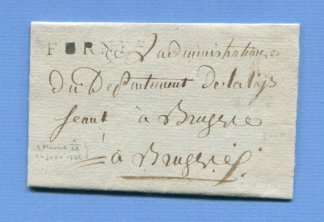 FURNES
L'administration
Du Département De la lÿs
seant à Bruges
à Bruges